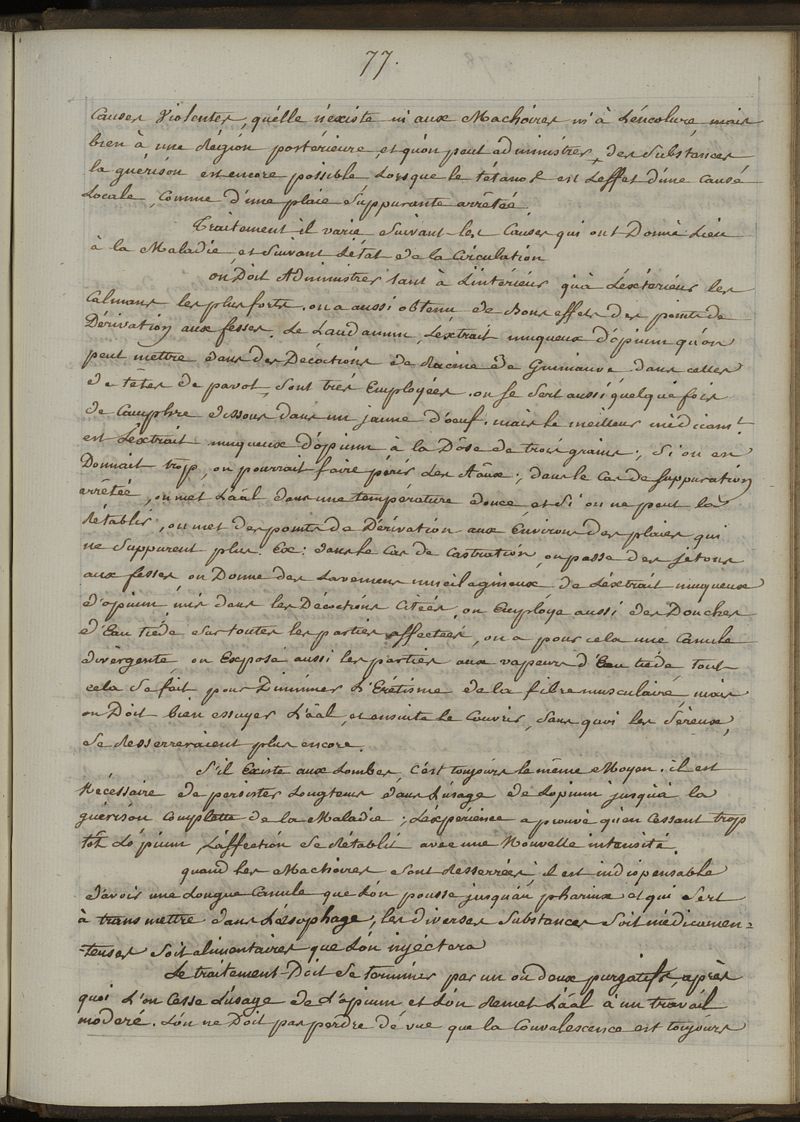 77.
Causes Violentes, qu'elle n'existe ni aux Machoires ni à L'éncolure mais
bien à une Région postérieure, et qu'on peut administrer, des Substances
la guérison est encore possible Lorsque le tétanos est L'effet d'une Cause
Locale, Comme d'une plaie Suppurante arrêtée.
Traitement il varie Suivant les Causes qui ont Donné Lieu
à la Maladie, et Suivant L'état de la Circulation
on Doit Administrer tant à L'intérieur qu'à L'éxtérieur les
Calmans les plus forts. on a aussi obtenu de Bons effets des points de
Dérivation aux fesses. Le Laudanum, L'éxtrait muqueux d'ópium qu'on
peut mettre dans des Décoctions de Racine de Guimauve dans celles
de têtes de pavot, Sont très Employées. on se Sert aussi quelque fois
de Camphre dissous dans un jaune d'oeuf. mais le meilleur médicamt.
est L'éxtrait muqueux d'ópium à la Dôse de trois grains; Si on en
Donnait trop, on pourrait faire périr Les Aãux; dans le Cas de Suppuration
arrêtée, on met L'ãal dans une température douce, et Si on ne peut la
Rétablir, on met des points de Dérivation aux Environs des plaies qui
ne Suppurent plus. Ex: dans le Cas de Castration, on passe des sétons
aux fesses, on Donne des Lavemens mucilagineux de L'éxtrait muqueux
d'ópium, mis dans les Décoctions Citées, on Employe aussi des Douches
d'Eau tiéde Sur toutes les parties affectées, on a pour cela une Canule
divergente, on Expose aussi les parties aux vapeurs d'Eau tiéde tout
cela Se fait pour Diminuer L'Erétisme de la fibre musculaire, mais
on Doit bien essuyer L'ãal, et ensuite le Couvrir, Sans quoi les Séreux,
Se Resserreraient plus encore.
S'il Existe aux Lombes, C'ést toujours le même Moyen. il est
Nécessaire de persister Longtems dans L'usage de L'opium jusqu'à la
guérison Complette de la Maladie; L'éxpérience a prouvé qu'en Cessant trop
tôt L'ópium, L'affection Se Rétablit avec une Nouvelle intensité.
quand les Machoires Sont Resserrées, il est indispensable
d'avoir une Longue Canule que L'on pousse jusqu'au pharinx et qui Sert
à transmettre dans L'ésophage, les diverses Substances Soit médicamen=
-teuses Soit alimentaires que L'on injéctera
Le traitement Doit Se terminer par un ou deux purgatifs, après
quoi L'on Cesse L'usage de L'ópium et L'ón Remet L'ãal à un travail
moderé. L'ón ne Doit pas perdre de vue que la Convalescence est toujours